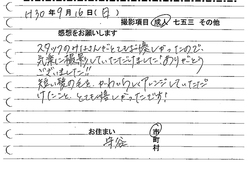 H30年9月16日(日)
撮影項目 成人 七五三 その他
感想をお願いします
スタッフのみなさんがとてもお優しかったので、
気楽に撮影していただけました!ありがとう
ございました!!
短い髪の毛を、かわいらしくアレンジしていただ
けたこと、とても嬉しかったです!
お住まい 守谷 市町村